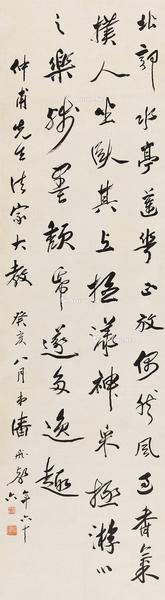 北郭水亭莲华正放偶然风过香气
扑人坐卧其上摇漾神采极游心
之乐残墨颓纸遂多逸趣
仲甫先生法家大教
癸亥八月弟潘龄年六十六